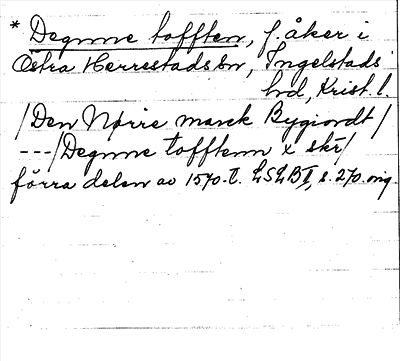 * Degnne tofften, f. åker i
Östra Herrestads sn, Ingelstads
hd, Krist. l.
/Den Nørre marck Bygiordt/
---/Degnne tofftenn x skr/
förra delen av 1570-t. LSLB II, s. 270. orig.